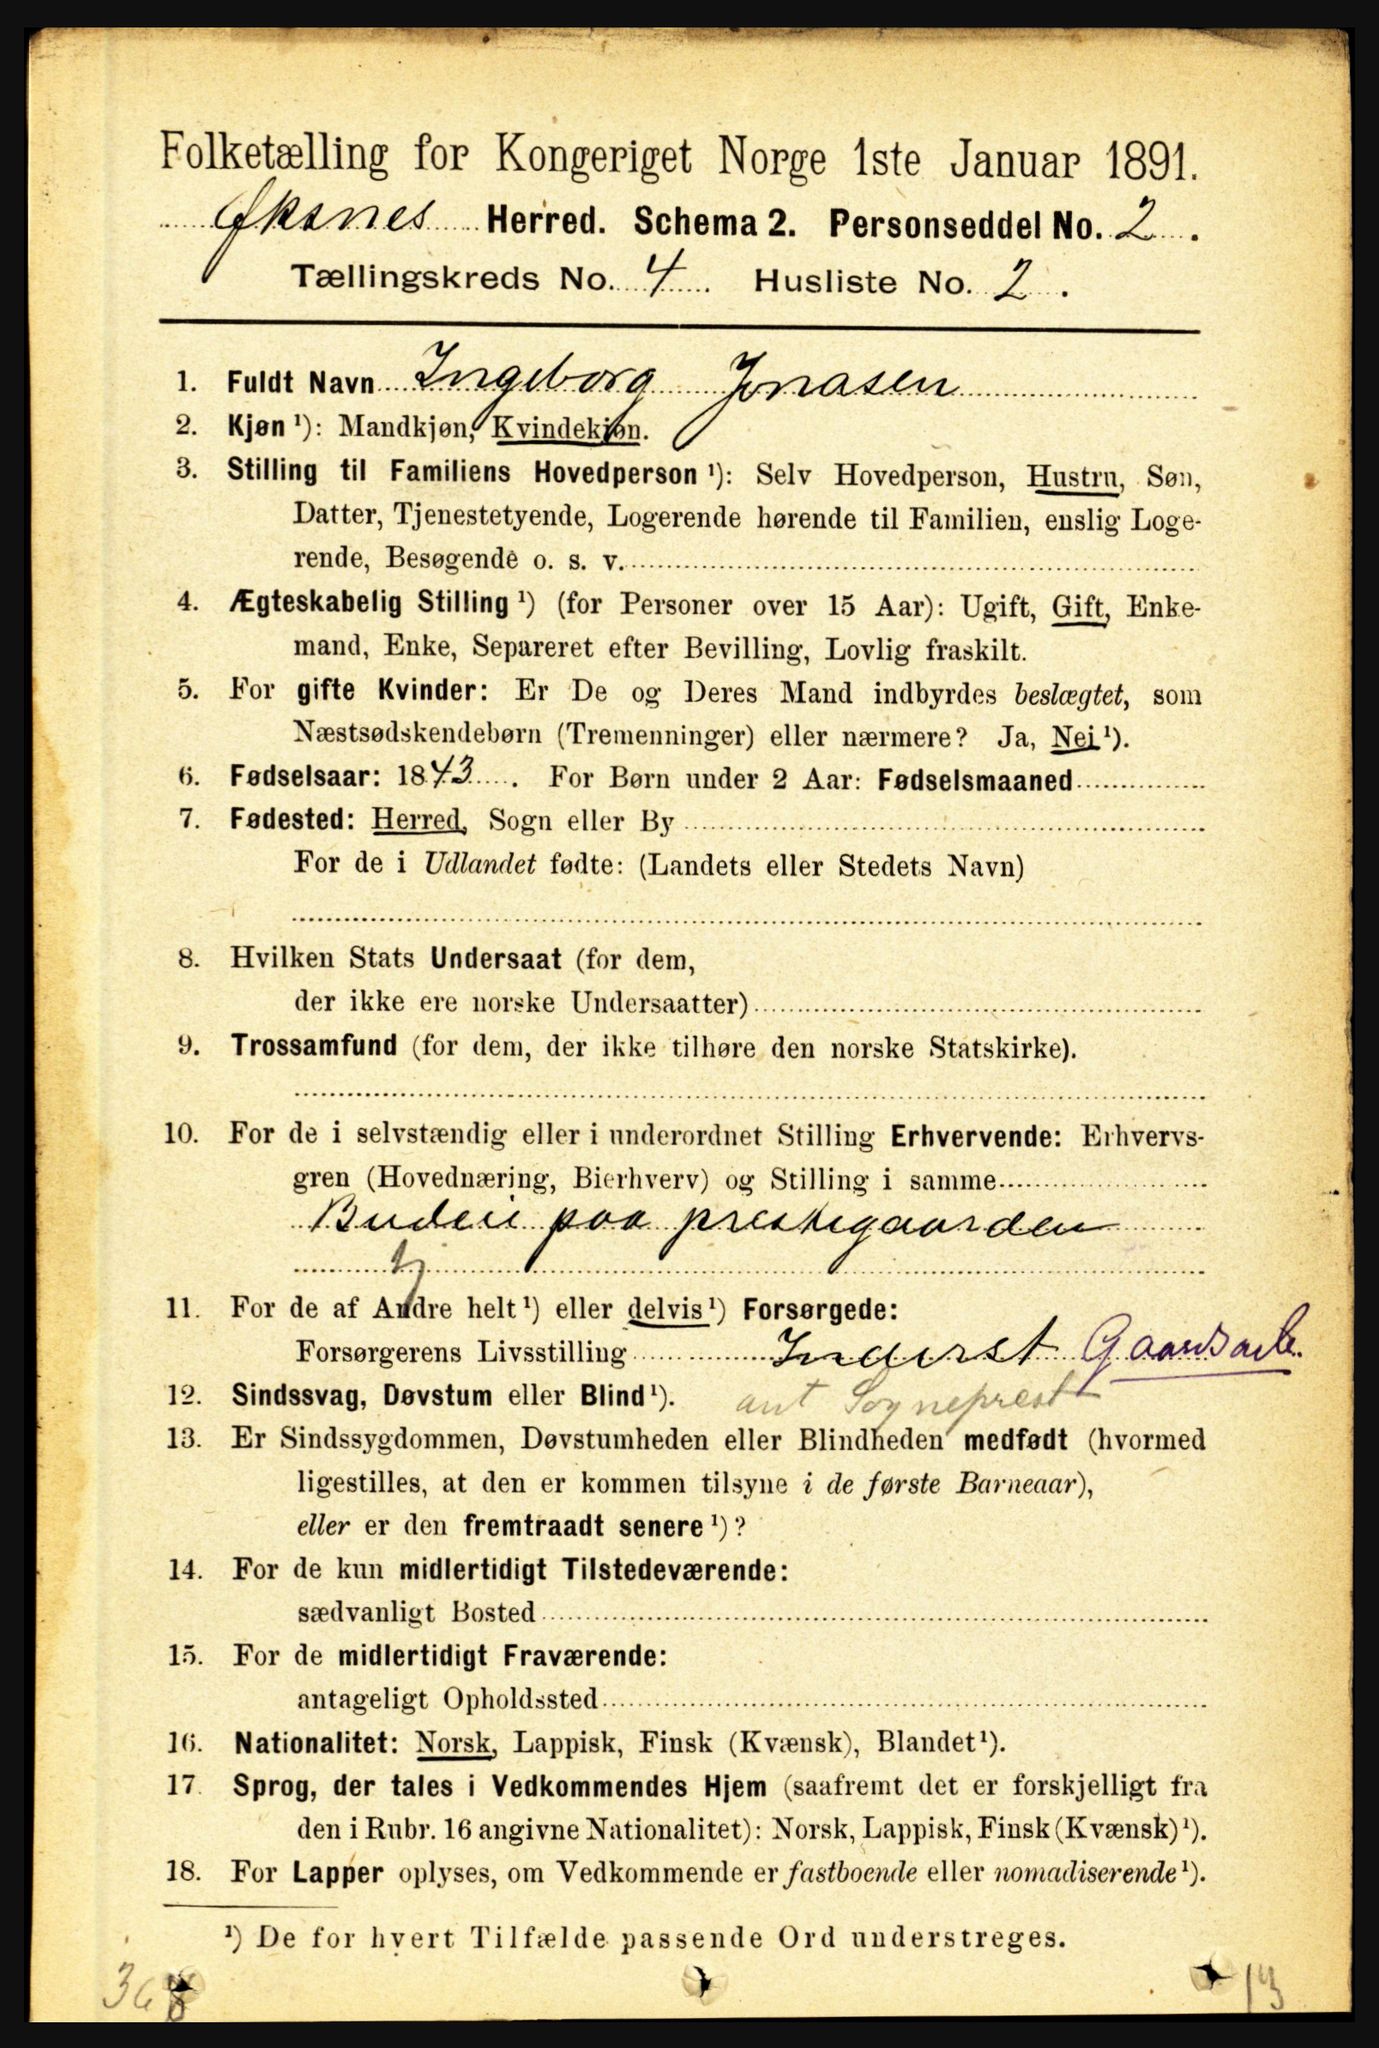 Folketælling for Kongeriget Norge 1ste Januar 1891.
Øksnes Herred. Schema 2. Personseddel No. 2.
Tællingskreds No. 4. Husliste No. 2.
1. Fuldt Navn Ingeborg Jonasen
2. Kjøn ¹): Mandkjøn, Kvindekjøn.
3. Stilling til Familiens Hovedperson ¹): Selv Hovedperson, Hustru, Søn,
Datter, Tjenestetyende, Logerende hørende til Familien, enslig Loge-
rende, Besøgende o. s. v.
4. Ægteskabelig Stilling ¹) (for Personer over 15 Aar): Ugift, Gift, Enke-
mand, Enke, Separeret efter Bevilling, Lovlig fraskilt.
5. For gifte Kvinder: Er De og Deres Mand indbyrdes beslægtet, som
Næstsødskendebørn (Tremenninger) eller nærmere? Ja, Nei ¹).
6. Fødselsaar: 1843. For Børn under 2 Aar: Fødselsmaaned
7. Fødested: Herred, Sogn eller By
For de i Udlandet fødte: (Landets eller Stedets Navn)
8. Hvilken Stats Undersaat (for dem,
der ikke ere norske Undersaatter)
9. Trossamfund (for dem, der ikke tilhøre den norske Statskirke).
10. For de i selvstændig eller i underordnet Stilling Erhvervende: Erhvervs-
gren (Hovednæring, Bierhverv) og Stilling i samme
Budeie paa prestegaarden
tj
11. For de af Andre helt ¹) eller delvis ¹) Forsørgede:
Forsørgerens Livsstilling Inderst Gaardsarb.
12. Sindssvag, Døvstum eller Blind ¹). ant Sogneprest
13. Er Sindssygdommen, Døvstumheden eller Blindheden medfødt (hvormed
ligestilles, at den er kommen tilsyne i de første Barneaar),
eller er den fremtraadt senere ¹)?
14. For de kun midlertidigt Tilstedeværende:
sædvanligt Bosted
15. For de midlertidigt Fraværende:
antageligt Opholdssted
16. Nationalitet: Norsk, Lappisk, Finsk (Kvænsk), Blandet ¹).
17. Sprog, der tales i Vedkommendes Hjem (saafremt det er forskjelligt fra
den i Rubr. 16 angivne Nationalitet): Norsk, Lappisk, Finsk (Kvænsk) ¹).
18. For Lapper oplyses, om Vedkommende er fastboende eller nomadiserende ¹).
¹) De for hvert Tilfælde passende Ord understreges.
368 13